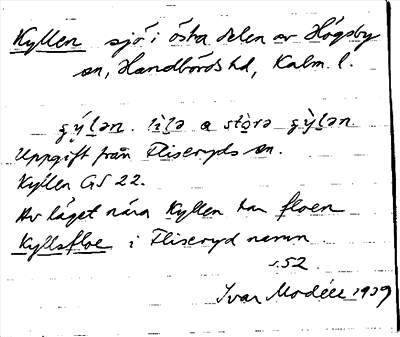 Kyllen sjö i östra delen av Högsby
sn, Handbörds hd, Kalm. l.
Uppgift från Fliseryds sn.
Kyllen GS 22.
Av läget nära Kyllen har floen
Kyllsfloe i Fliseryd namn
s. 52.
Ivar Modéer 1939